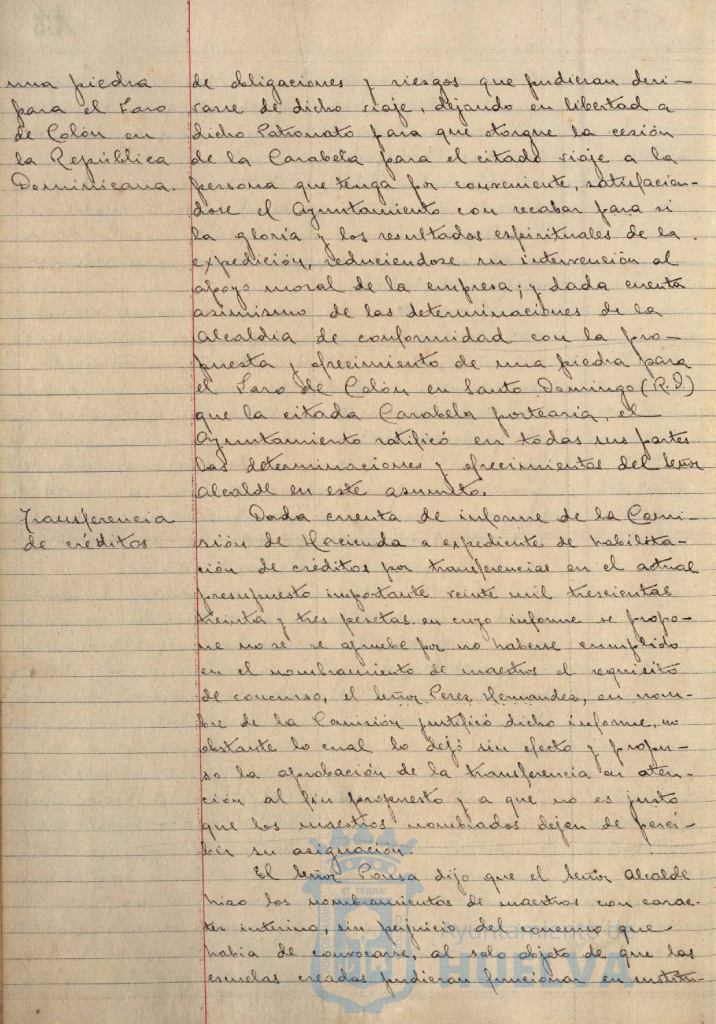 una piedra
para el Faro
de Colón en
la República
Dominicana.
de obligaciones y riesgos que pudieran deri-
varse de dicho viaje, dejando en libertad a
dicho Patronato para que otorgue la cesión
de la Carabela para el citado viaje a la
persona que tenga por conveniente, satisfacien-
dose el Ayuntamiento con recabar para si
la gloria y los resultados espirituales de la
expedición, reduciendose su intervención al
apoyo moral de la empresa; y dada cuenta
asimismo de las determinaciones de la
Alcaldia de conformidad con la pro-
puesta y ofrecimiento de una piedra para
el Faro de Colón en Santo Domingo (R.D)
que la citada Carabela portearia, el
Ayuntamiento ratificó en todas sus partes
las determinaciones y ofrecimientos del Señor
Alcalde en este asunto.
Transferencia
de créditos
Dada cuenta de informe de la Comi-
sión de Hacienda a expediente de habilita-
ción de créditos por transferencias en el actual
presupuesto importante veinte mil trescientas
treinta y tres pesetas en cuyo informe se propo-
ne no se se apruebe por no haberse cumplido
en el nombramiento de maestros el requisito
de concurso, el Señor Perez Hernandez, en nom-
bre de la Comisión justificó dicho informe, no
obstante lo cual lo dejó sin efecto y propu-
so la aprobación de la transferencia en aten-
ción al fin propuesto y a que no es justo
que los maestros nombrados dejen de perci-
bir su asignación.
El Señor Ponsa dijo que el Señor Alcalde
hizo los nombramientos de maestros con carac-
ter interino, sin perjuicio del concurso que
habia de convocarse, al solo objeto de que las
escuelas creadas pudieran funcionar en
Ayuntamiento de
HUELVA